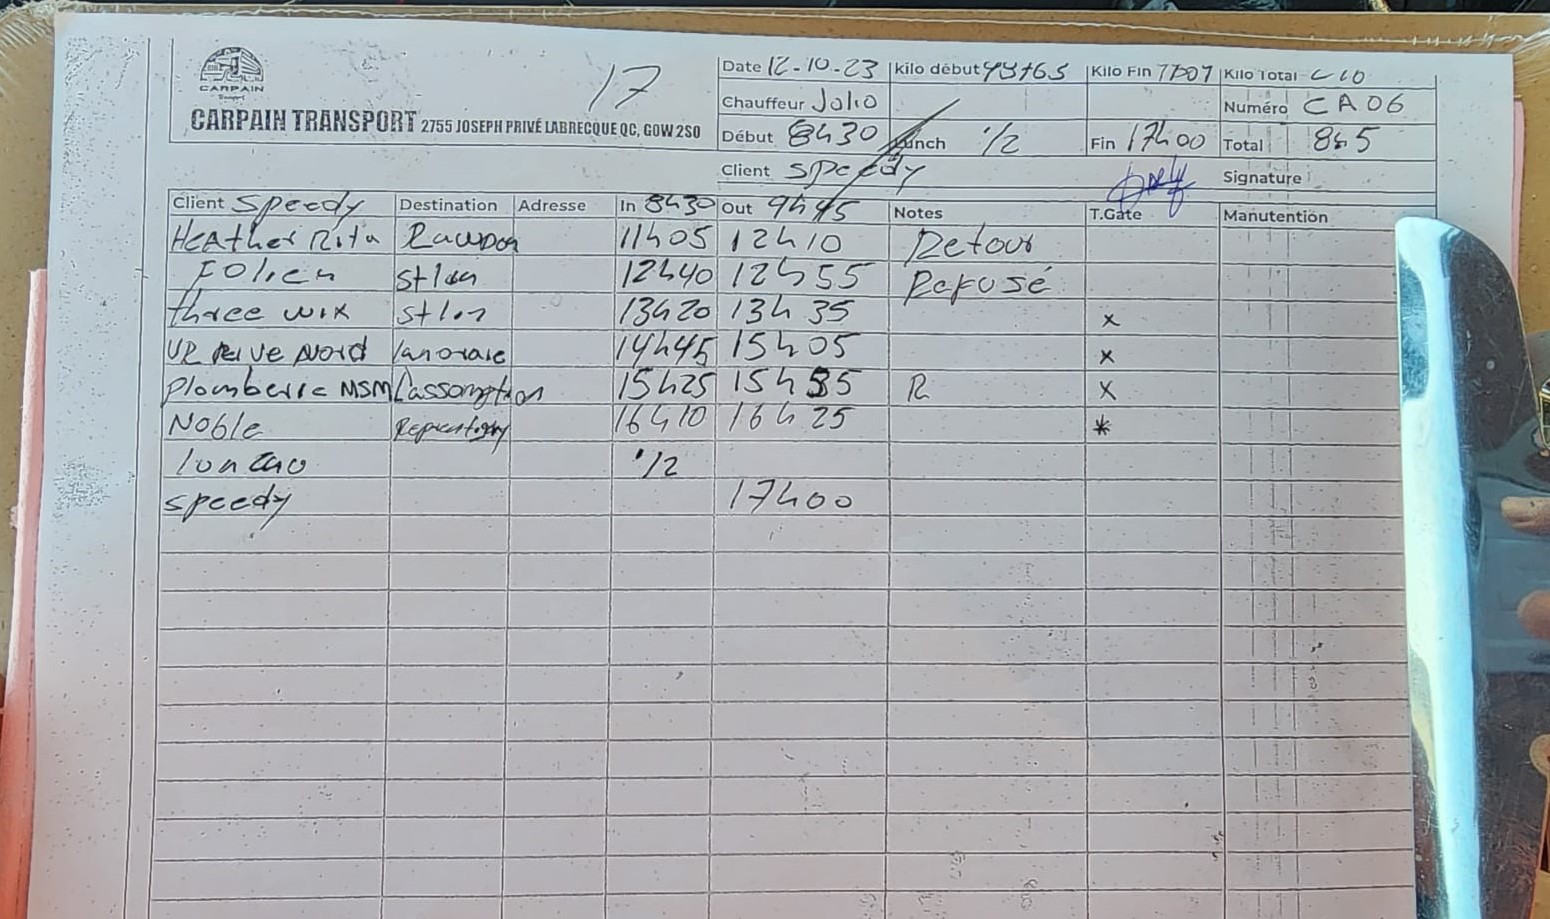 17
CARPAIN
Transport
CARPAIN TRANSPORT 2755 JOSEPH PRIVÉ LABRECQUE QC, G0W 2S0
Date 12-10-23 kilo début Kilo Fin Kilo Total
Chauffeur Julio Numéro CA06
Début 8h30 Lunch 1/2 Fin 17h00 Total 8h5
Client speedy Signature
Client speedy Destination Adresse In 8h30 Out 9h45 Notes T.Gate Manutention
HEAther Rita Rawdon 11h05 12h10 Retour
12h40 12h55 Refusé
three wix 13h20 13h35 x
VR Rive Nord lanoraie 14h45 15h05 x
Plomberie MSM L'assomption 15h25 15h35 R x
Noble Repentigny 16h10 16h25 *
1/2
speedy 17h00